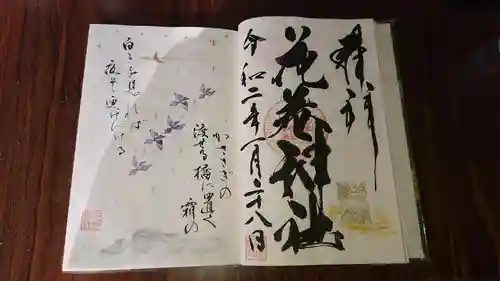 奉拝
花巻神社
令和二年一月二十八日
かささぎの
渡せる橋に置く
霜の
白きを見れば
夜そ更けにける